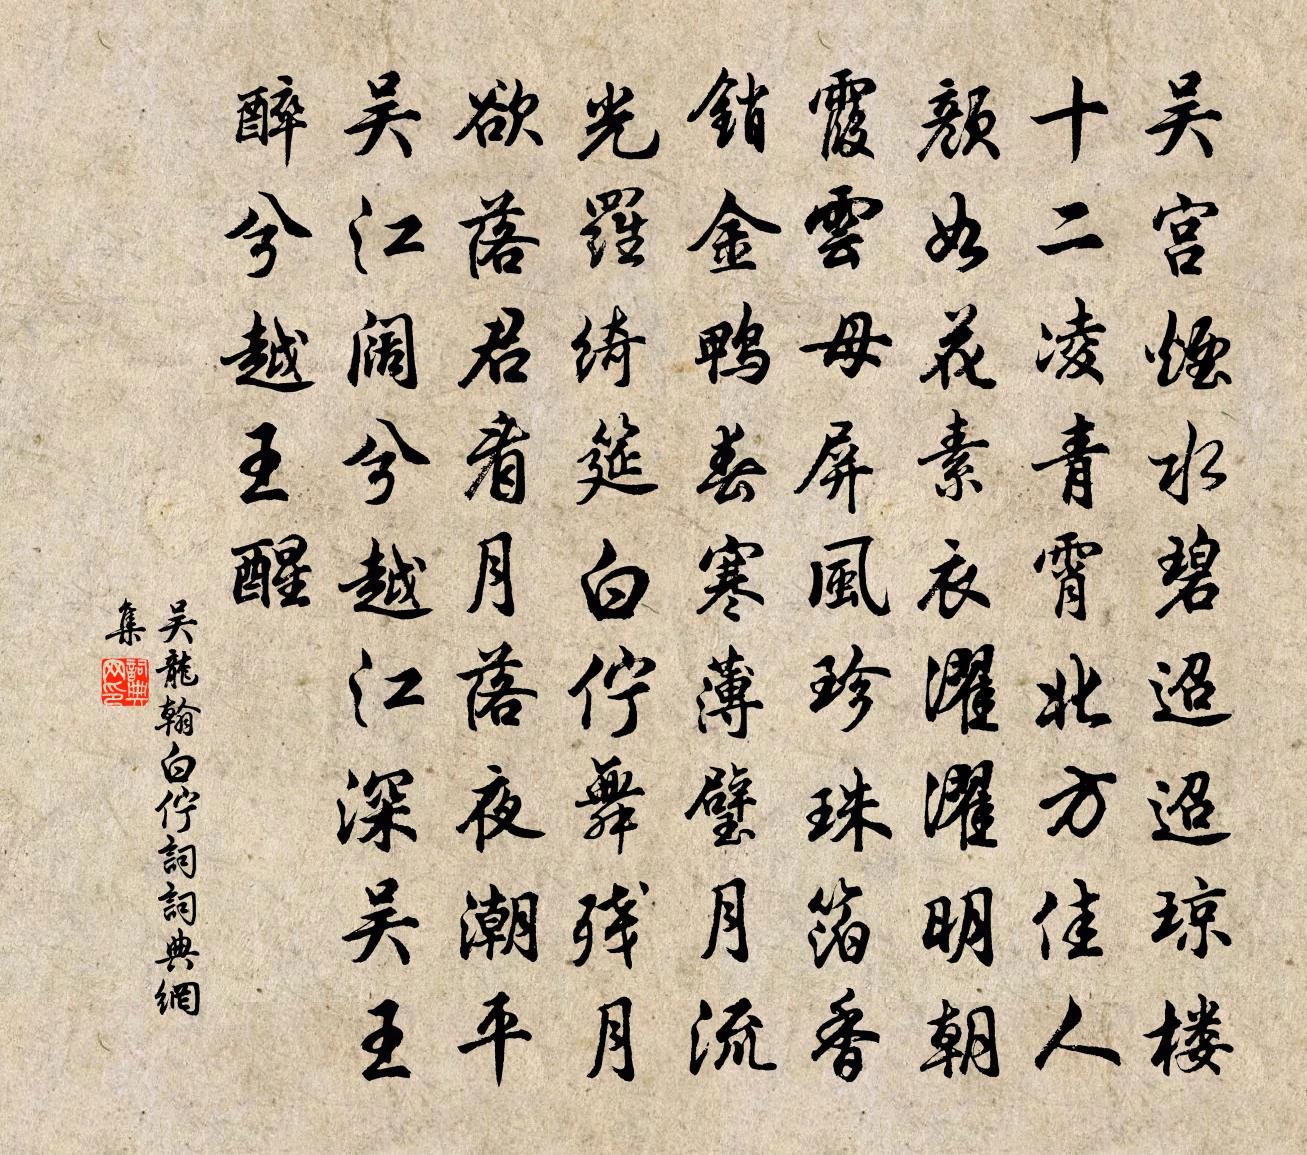 吴宫煙水碧迢迢琼楼
十二凌青霄北方佳人
顔如花素衣濯濯明朝
霞雲母屏風珍珠箔香
銷金鴨春寒薄璧月流
光羅綺筵白佇舞残月
欲落君看月落夜潮平
吴江阔兮越江深吴王
醉兮越王醒
吴龍翰白佇詞詞典網
集
詞典
网印